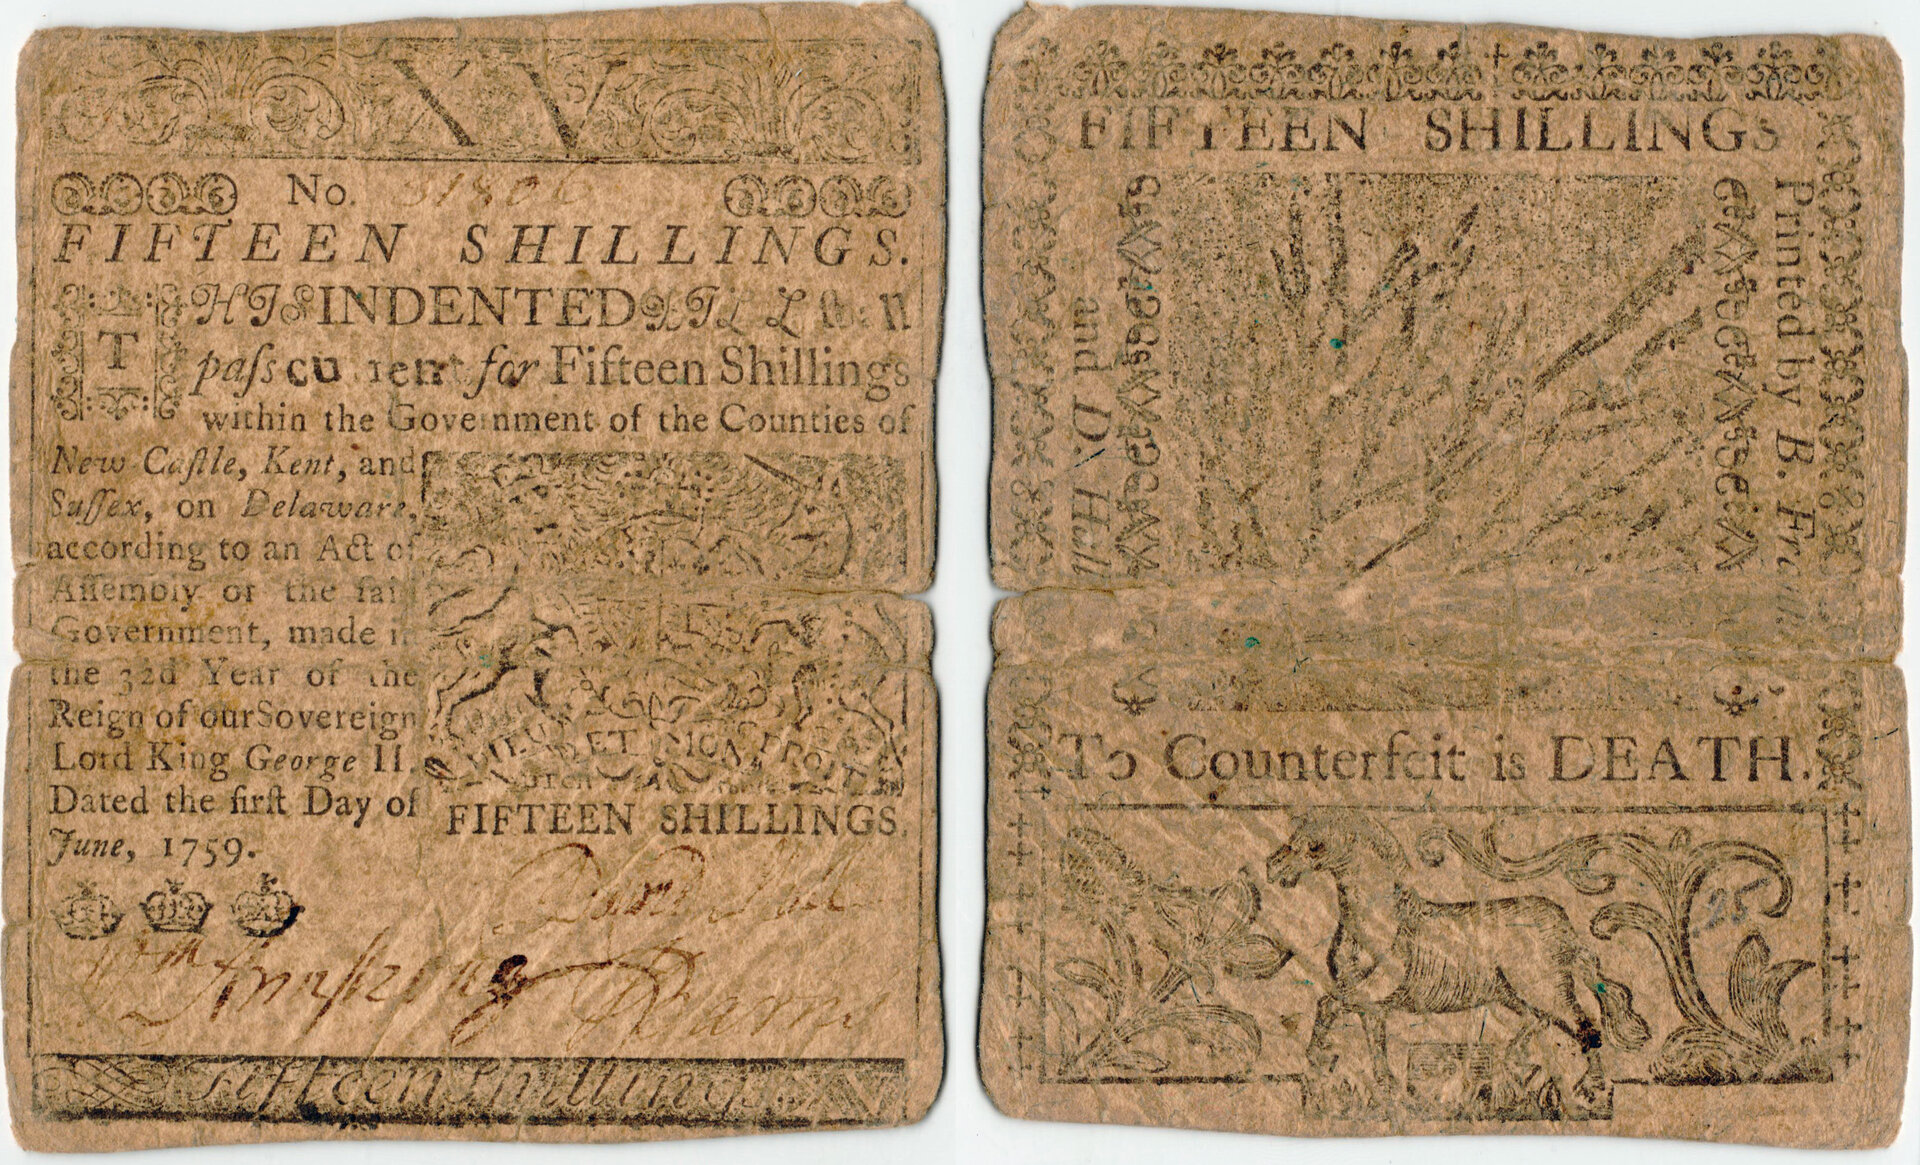 XV
No. 31806
FIFTEEN SHILLINGS.
THIS INDENTED BILL shall
paſs current for Fifteen Shillings
within the Government of the Counties of
New-Caſtle, Kent, and
Suſſex, on Delaware,
according to an Act of
Aſſembly of the ſaid
Government, made in
the 32d Year of the
Reign of our Sovereign
Lord King George II.
Dated the firſt Day of
June, 1759.
DIEU ET MON DROIT
FIFTEEN SHILLINGS.
David Hall
Wm Armstrong
Fifteen Shillings. XV
FIFTEEN SHILLINGS
Printed by B. Franklin
and D. Hall
To Counterfeit is DEATH.
25